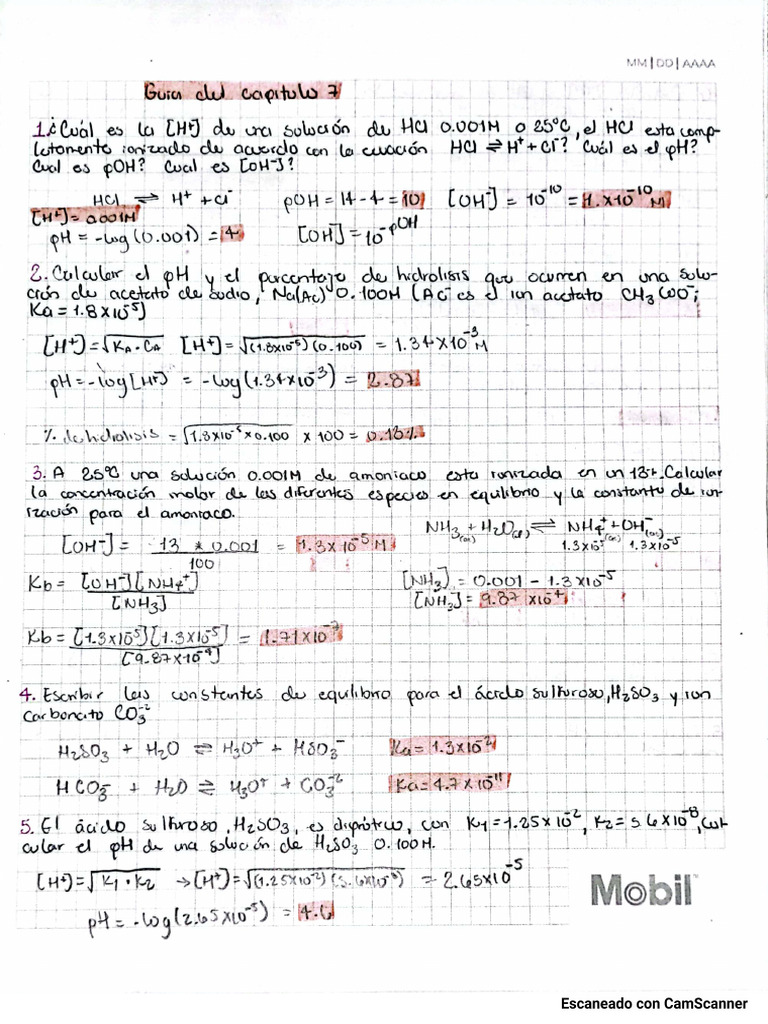 MM | DD | AAAA
Guia del capitulo 7
1. ¿Cuál es la [H+] de una solución de HCl 0.001M a 25°C, el HCl esta comp-
letamente ionizado de acuerdo con la ecuación HCl ⇌ H+ + Cl-? Cuál es el pH?
Cual es pOH? Cual es [OH-]?
HCl ⇌ H+ + Cl-
[H+] = 0.001M
pOH = 14 - 4 = 10
[OH-] = 10^-10 = 1.x10^-10 M
pH = -log (0.001) = 4
[OH] = 10^-pOH
2. Calcular el pH y el porcentaje de hidrolisis que ocurren en una solu-
ción de acetato de sodio, Na(Ac) 0.100M (Ac- es el ion acetato CH3COO-;
Ka = 1.8x10^-5)
[H+] = √KA·CA [H+] = √(1.8x10^-5)(0.100) = 1.34x10^-3 M
pH = -log [H+] = -log (1.34x10^-3) = 2.87
% de hidrolisis = √1.8x10^-5 x 0.100 x 100 = 0.13%
3. A 25°C una solución 0.001M de amoniaco esta ionizada en un 13%. Calcular
la concentración molar de las diferentes especies en equilibrio y la constante de ion-
ización para el amoniaco.
NH3(ac) + H2O(l) ⇌ NH4+(ac) + OH-(ac)
1.3x10^-5 1.3x10^-5
[OH-] = 13 * 0.001 / 100 = 1.3x10^-5 M
Kb = [OH-][NH4+] / [NH3]
[NH3] = 0.001 - 1.3x10^-5
[NH3] = 9.87 x10^-4
Kb = [1.3x10^-5][1.3x10^-5] / [9.87x10^-4] = 1.71x10^-7
4. Escribir las constantes de equilibrio para el ácido sulfuroso, H2SO3 y ion
carbonato CO3^-2
H2SO3 + H2O ⇌ H3O+ + HSO3- Ka = 1.3x10^-2
HCO3- + H2O ⇌ H3O+ + CO3^-2 Ka = 4.7x10^-11
5. El ácido sulfuroso, H2SO3, es diprótico, con K1 = 1.25x10^-2, K2 = 5.6x10^-8, cal-
cular el pH de una solución de H2SO3 0.100M.
[H+] = √K1·K2 → [H+] = √(1.25x10^-2)(5.6x10^-8) = 2.65x10^-5
pH = -log (2.65x10^-5) = 4.6
Mobil
Escaneado con CamScanner